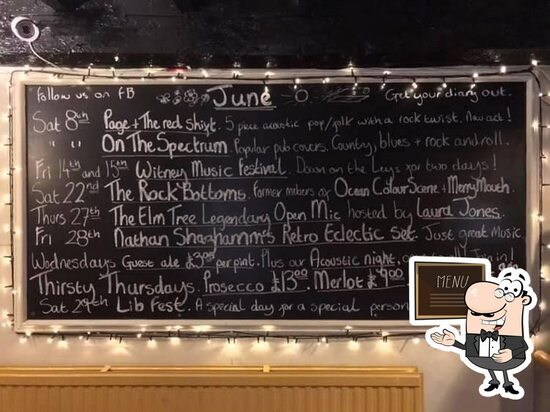 Follow us on FB June Get your diary out.
Sat 8th Page + The red Shiyt. 5 piece acoustic pop/folk with a rock twist. New act!
" " On The Spectrum. Popular pub covers. Country, blues + rock and roll.
Fri 14th and 15th Witney Music Festival. Down on the Leys for two days!
Sat 22nd The Rock Bottoms. Former members of Ocean Colour Scene + Merrymouth.
Thurs 27th The Elm Tree Legendary Open Mic hosted by Laura Jones.
Fri 28th Nathan Shaghamm's Retro Eclectic Set. Just great Music.
Wednesdays Guest ale £3.00 per pint. Plus our Acoustic night, Join in!
Thirsty Thursdays. Prosecco £13.00 Merlot £9.00
Sat 29th Lib Fest. A special day for a special person
MENU